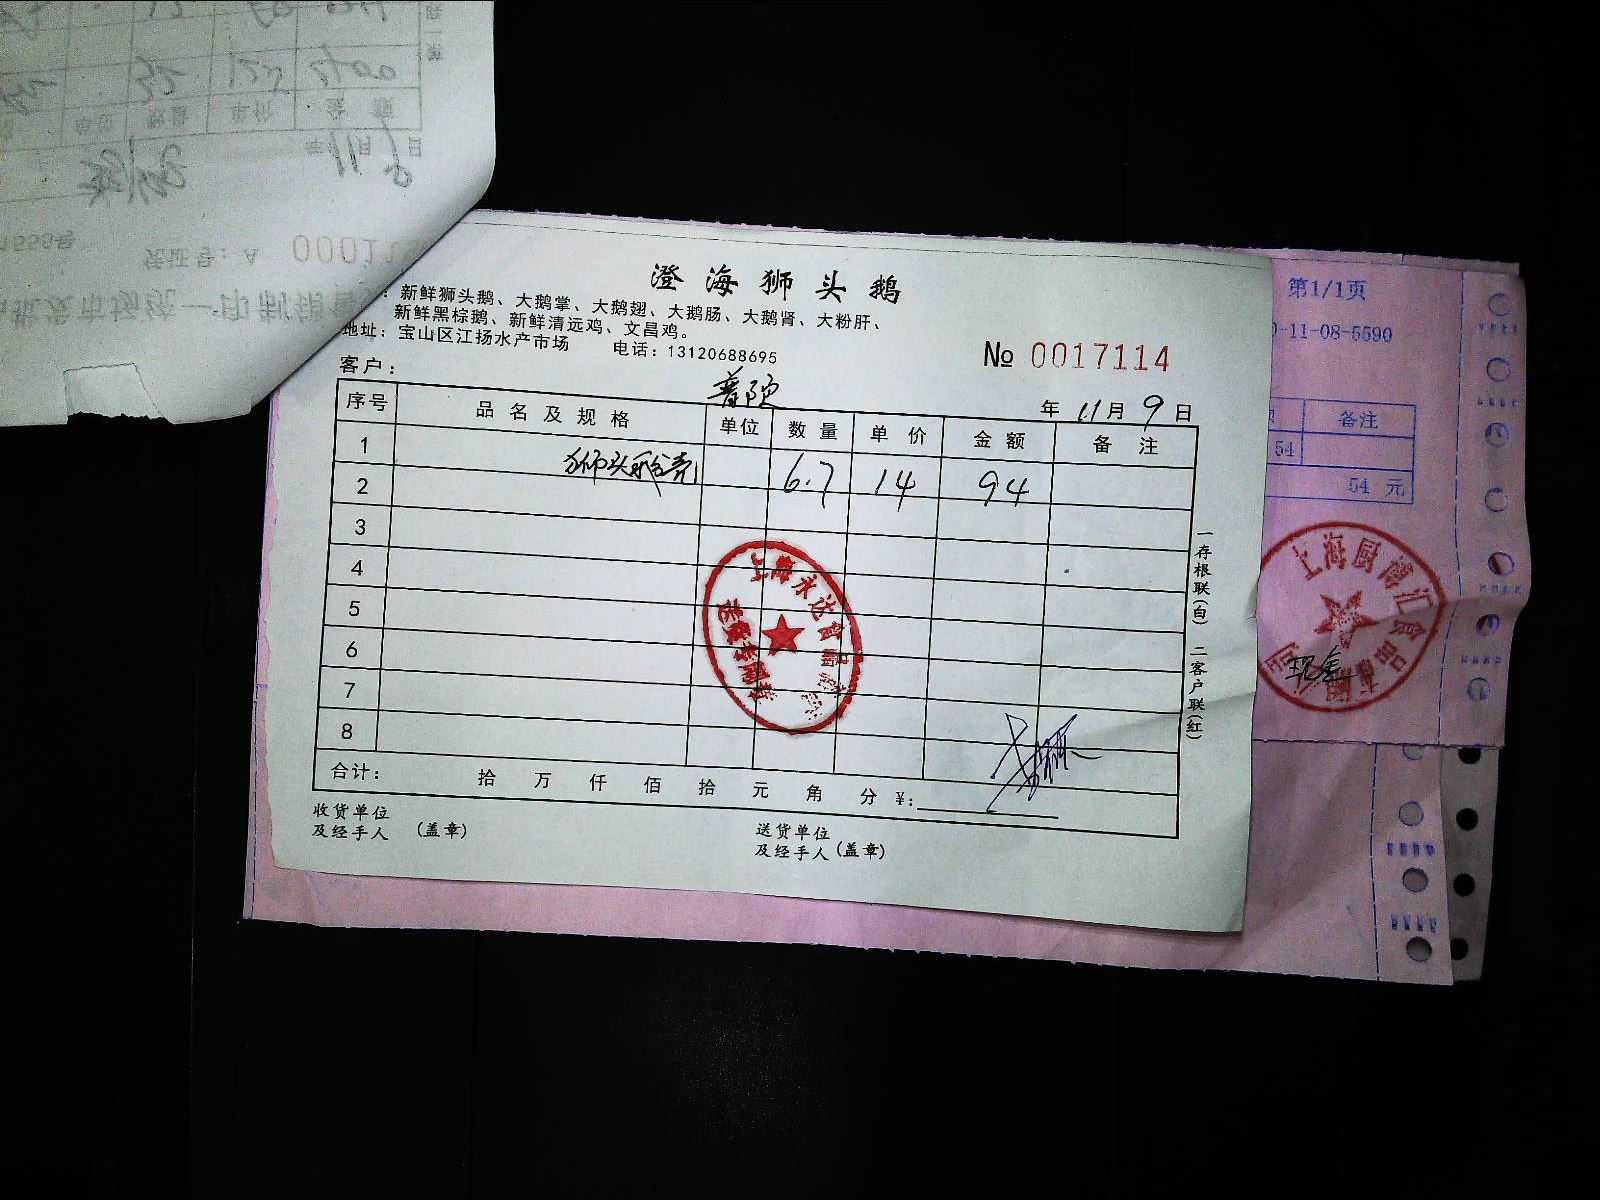 澄海狮头鹅
新鲜狮头鹅、大鹅掌、大鹅翅、大鹅肠、大鹅肾、大粉肝、
新鲜黑棕鹅、新鲜清远鸡、文昌鸡。
地址：宝山区江扬水产市场 电话：13120688695
№ 0017114
客户：
年 11月 9日
序号 品名及规格 单位 数量 单价 金额 备注
1 狮头鹅壳 6.7 14 94
2
3
4
5
6
7
8
合计： 拾 万 仟 佰 拾 元 角 分 ¥：
收货单位
及经手人 （盖章）
送货单位
及经手人（盖章）
一存根联（白） 二客户联（红）
上海永达食品
第1/1页
-11-08-5590
备注
54
54 元
上海厨 汇食品有限
现金
单位 数量 单价 金额
年 11月 日
凭证号：A 00011
批发市场统一印制销